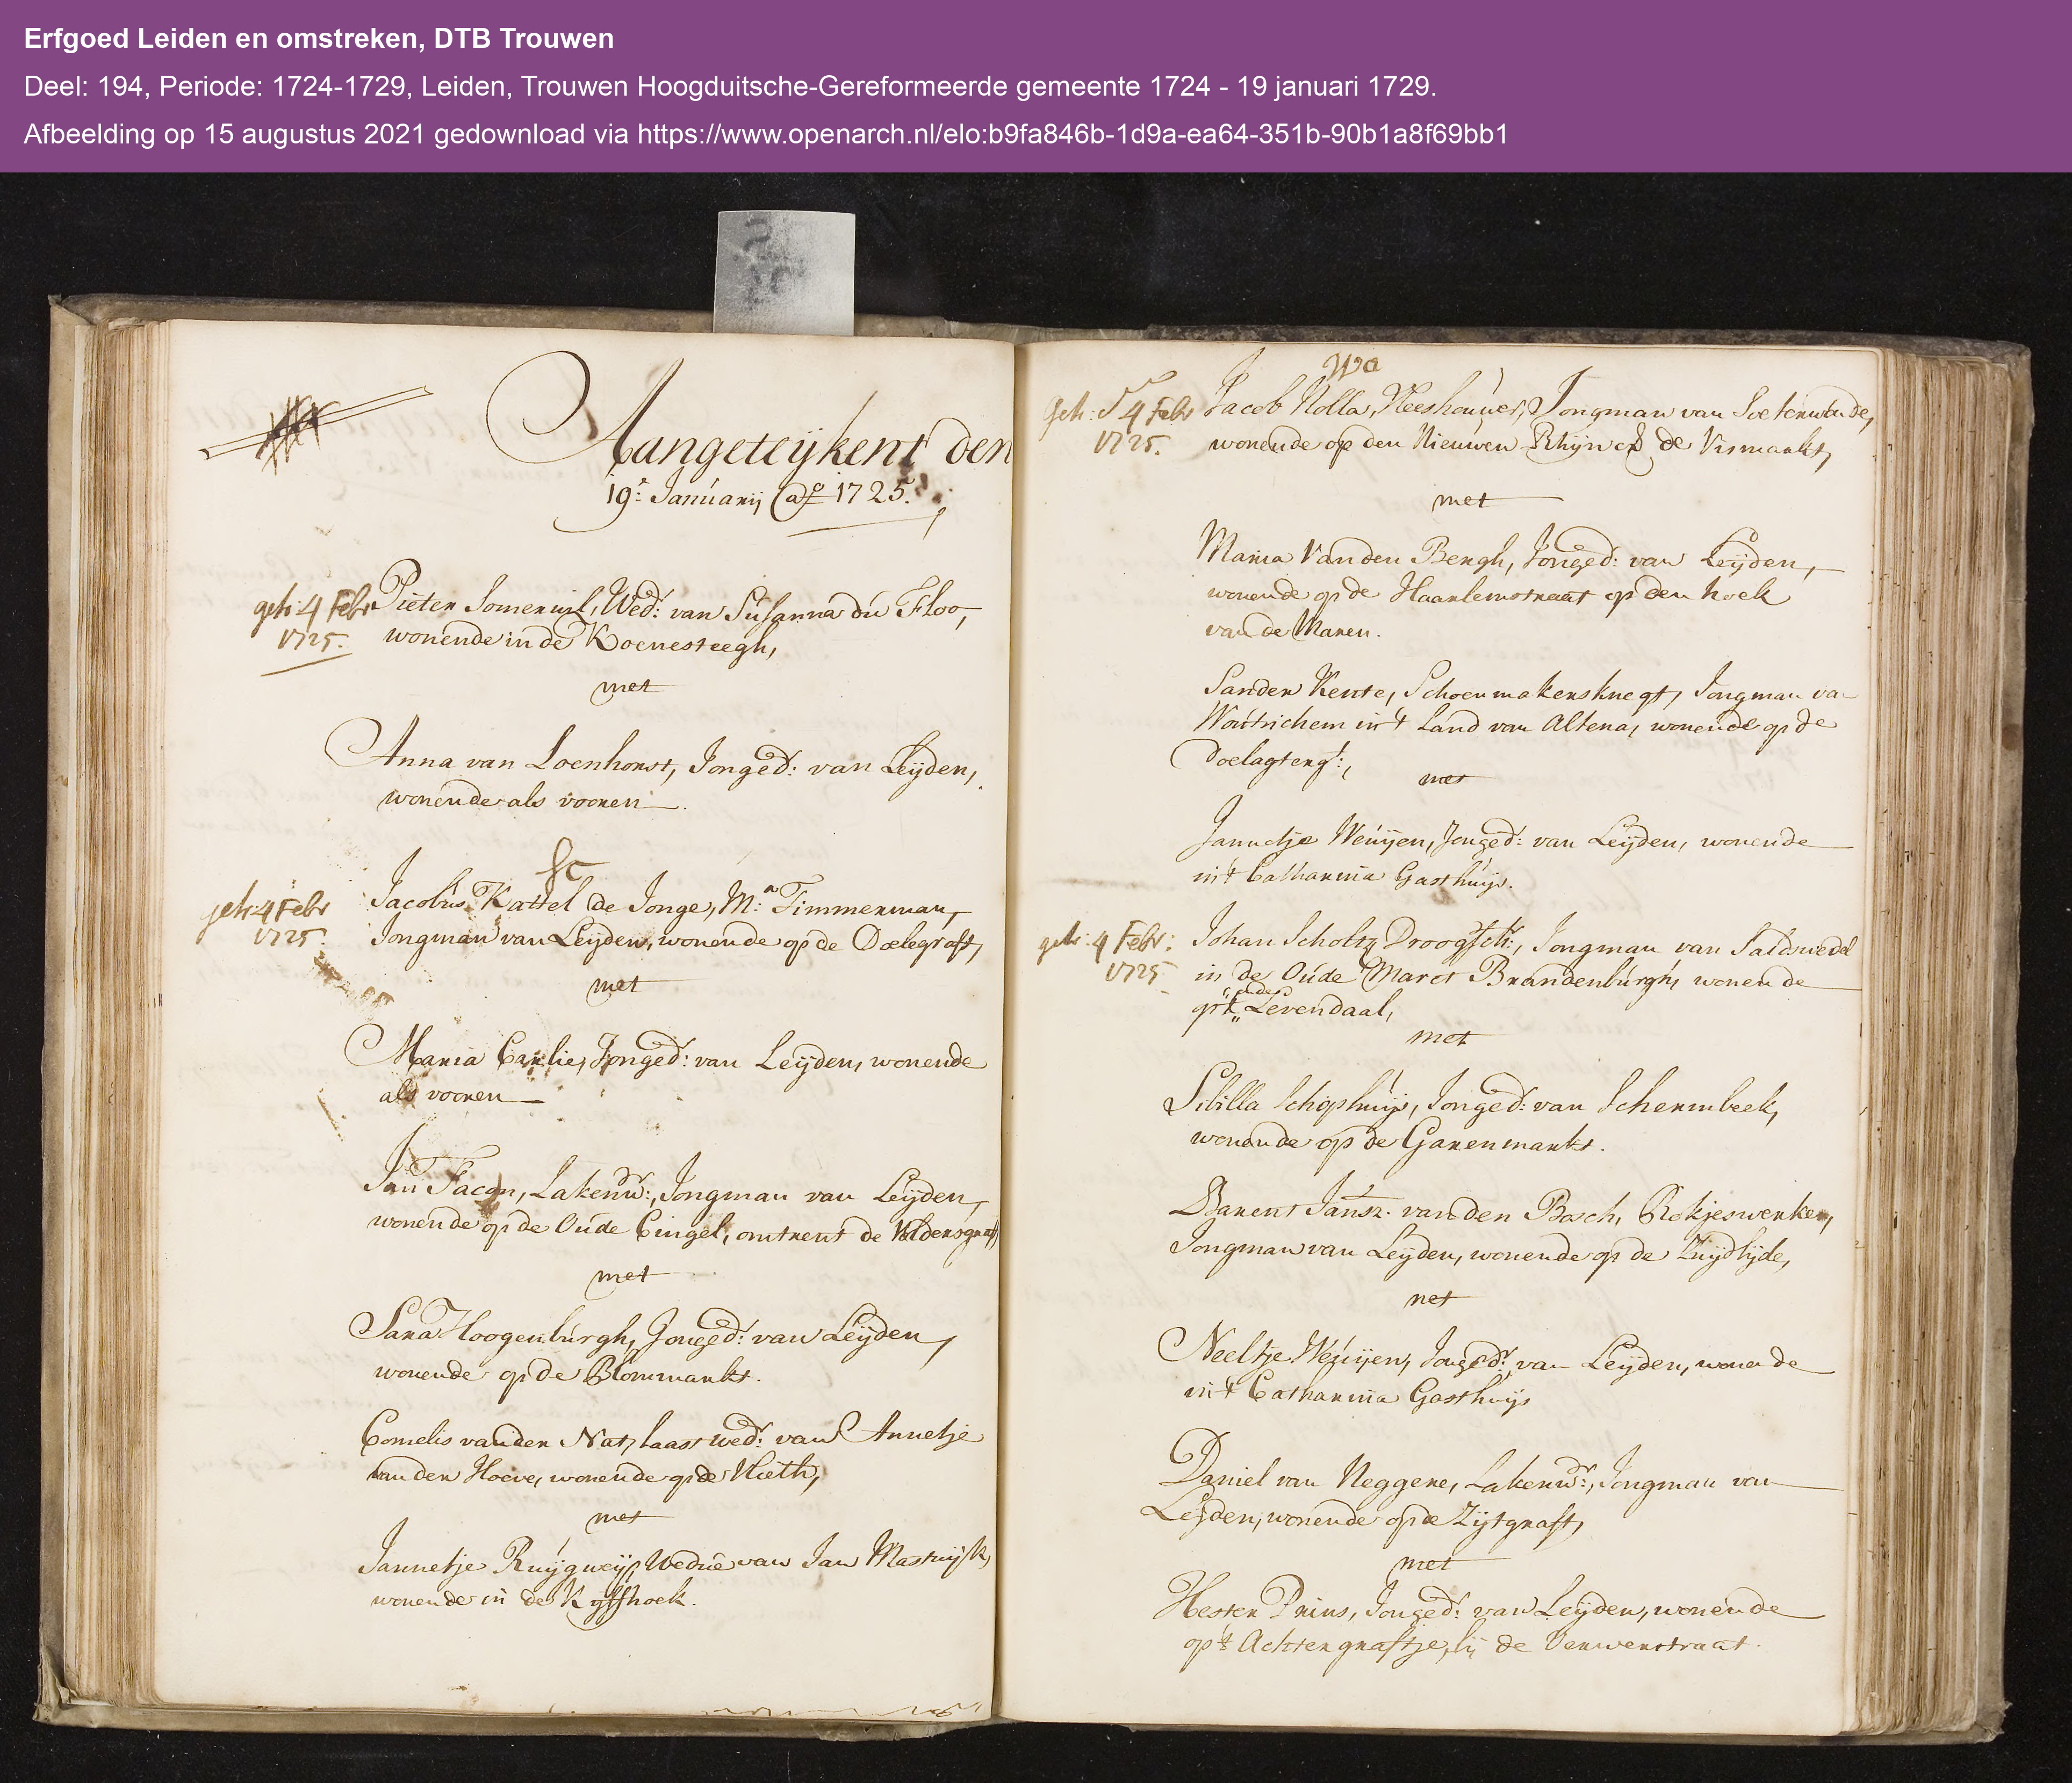 Erfgoed Leiden en omstreken, DTB Trouwen
Deel: 194, Periode: 1724-1729, Leiden, Trouwen Hoogduitsche-Gereformeerde gemeente 1724 - 19 januari 1729.
Afbeelding op 15 augustus 2021 gedownload via https://www.openarch.nl/elo:b9fa846b-1d9a-ea64-351b-90b1a8f69bb1
Aangeteijkent den
19: Januarij aº 1725.
geh: 4 Febr
1725.
Pieter Somerwil, Wedr: van Susanna du Floo,
wonende in de Koenesteegh,
met
Anna van Loenhorst, Jonged: van Leijden,
wonende als vooren.
geh: 4 Febr
1725.
Jacobus Kattel de Jonge, Mr: Timmerman,
Jongman van Leijden, wonende op de Doelegraft,
met
Maria Carlier, Jonged: van Leijden, wonende
als vooren
Jan Facon, Lakenwr:, Jongman van Leijden,
wonende op de Oude Cingel, omtrent de Voldersgraft
met
Sara Hoogenburgh, Jonged: van Leijden,
wonende op de Blommarkt.
Cornelis van der Nat, laast wedr: van Annetje
van der Hoeve, wonende op de Vlieth,
met
Jannetje Ruijgweijt, Weduë van Jan Mastwijk,
wonende in de Kijffhoek.
geh: 4 Febr
1725.
Jacob Nolla, Vleeshouwer, Jongman van Soeterwoude,
wonende op den Nieuwen Rhijn op de Vismarkt,
met
Maria Vanden Bergh, Jonged: van Leijden,
wonende op de Haarlemstraat op den hoek
van de Maren.
Sander Kente, Schoenmakersknegt, Jongman van
Woutrichem in't Land van Altena, wonende op de
Doelagtergt:,
met
Jannetje Weuijen, Jonged: van Leijden, wonende
in't Catharina Gasthuijs.
geh: 4 Febr:
1725
Johan Scholtz Droogsch:, Jongman van Saldwedel
in de Oude Marct Brandenburgh, wonende
op't oude Levendaal,
met
Sibilla Schiphuijs, Jonged: van Schermbeek,
wonende op de Garenmarkt.
Barent Jansz. van den Bosch, Rokjeswerker,
Jongman van Leijden, wonende op de Zuijdsijde,
met
Neeltje Weuijen, Jonged: van Leijden, wonende
in't Catharina Gasthuijs
Daniel van Neggere, Lakenwr:, Jongman van
Leijden, wonende op de Zijtgraft,
met
Hester Prins, Jonged: van Leijden, wonende
op't Achtergraftje, bij de Verwerstraat.